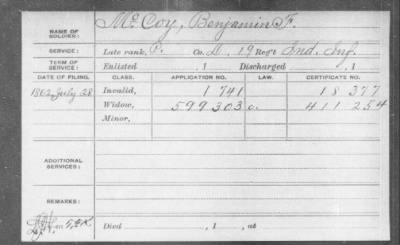 NAME OF SOLDIER: McCoy, Benjamin F.
SERVICE: Late rank, P. Co. D, 19 Reg't Ind. Inf.
TERM OF SERVICE: Enlisted , 1 Discharged , 1
DATE OF FILING. CLASS. APPLICATION NO. LAW. CERTIFICATE NO.
1862, July 28 Invalid, 1 741 18 377
Widow, 599303 411 254
Minor,
ADDITIONAL SERVICES:
REMARKS:
Died , 1 , at